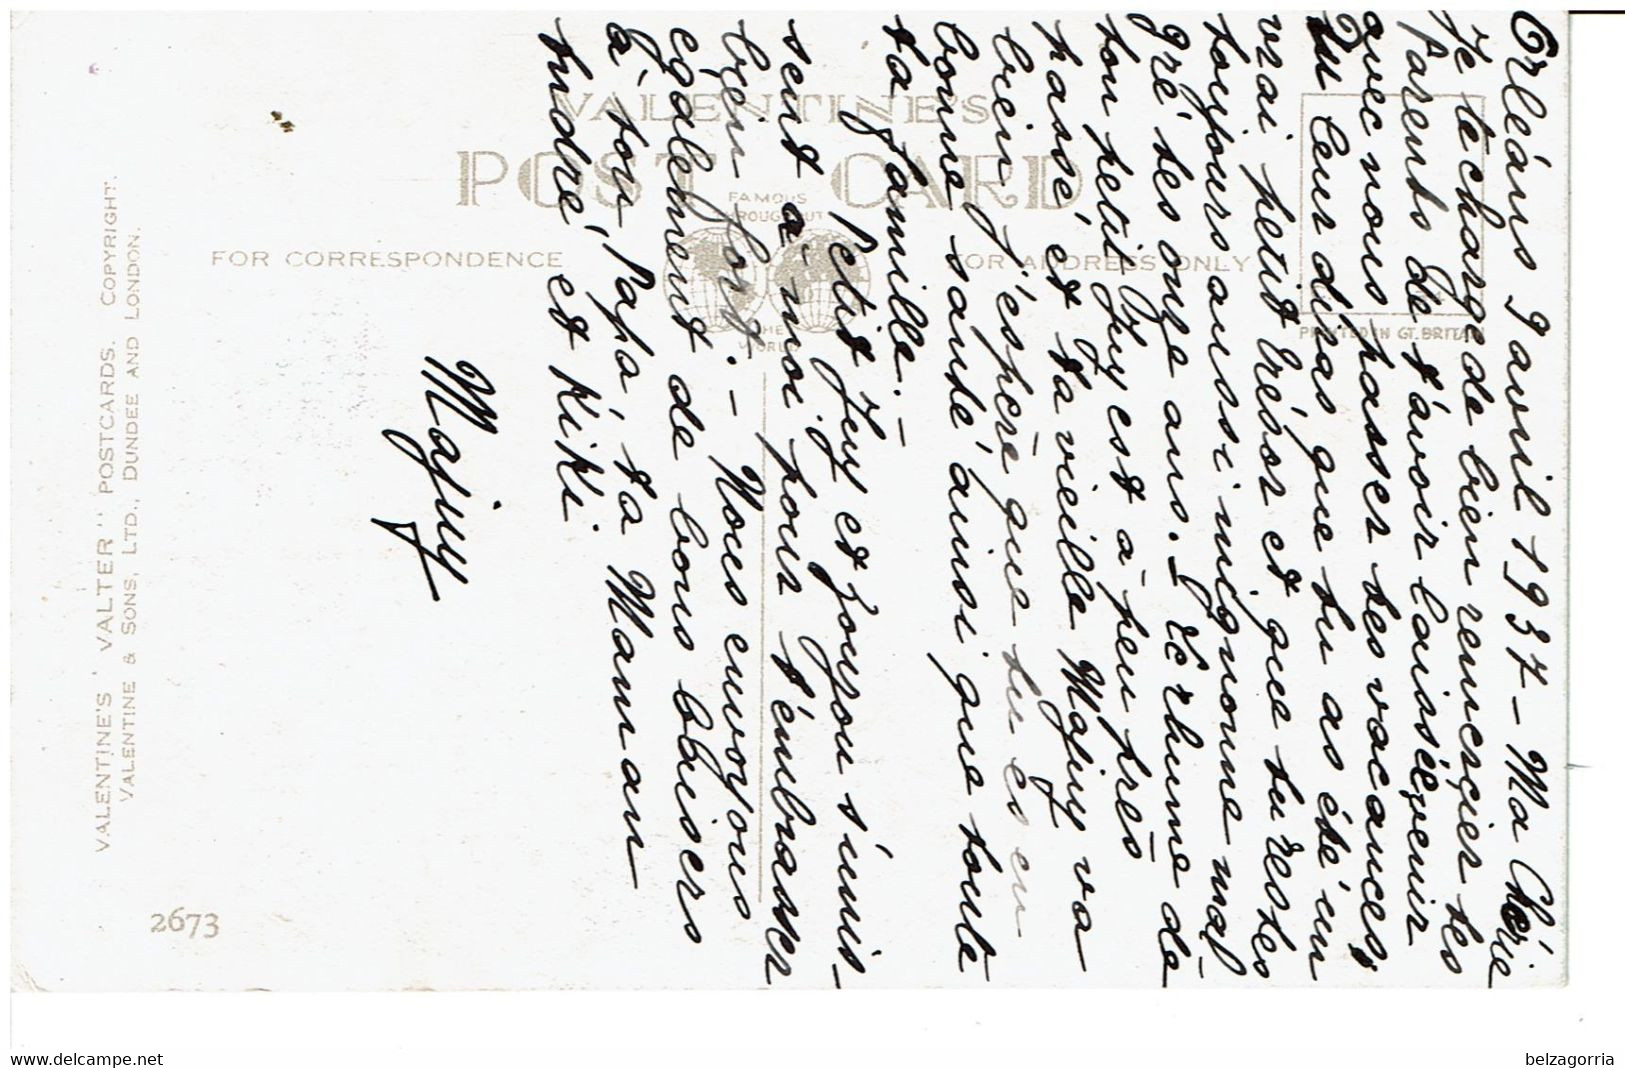 Orléans 9 avril 1937 - Ma Chérie
Je te charge de bien remercier tes
parents de t'avoir laissée venir
avec nous passer tes vacances.
Tu leur diras que tu as été un
vrai petit trésor et que tu restes
toujours aussi mignonne mal-
gré tes onze ans. - Le rhume de
ton petit Guy est à peu près
passé, et ta vieille Majuy va
bien, j'espère que tu es en
bonne santé ainsi que toute
ta famille. -
Petit Guy et joujou s'unis-
sent à moi pour t'embrasser
bien fort. - Nous envoyons
également de bons baisers
à ton Papa, ta Maman
André et Kiki.
Majuy
VALENTINE'S
POST CARD
FAMOUS
THROUGHOUT
THE
WORLD
FOR CORRESPONDENCE
FOR ADDRESS ONLY
PRINTED IN GT. BRITAIN
VALENTINE'S "VALTER" POSTCARDS. COPYRIGHT.
VALENTINE & SONS, LTD., DUNDEE AND LONDON.
2673
www.delcampe.net
belzagorria